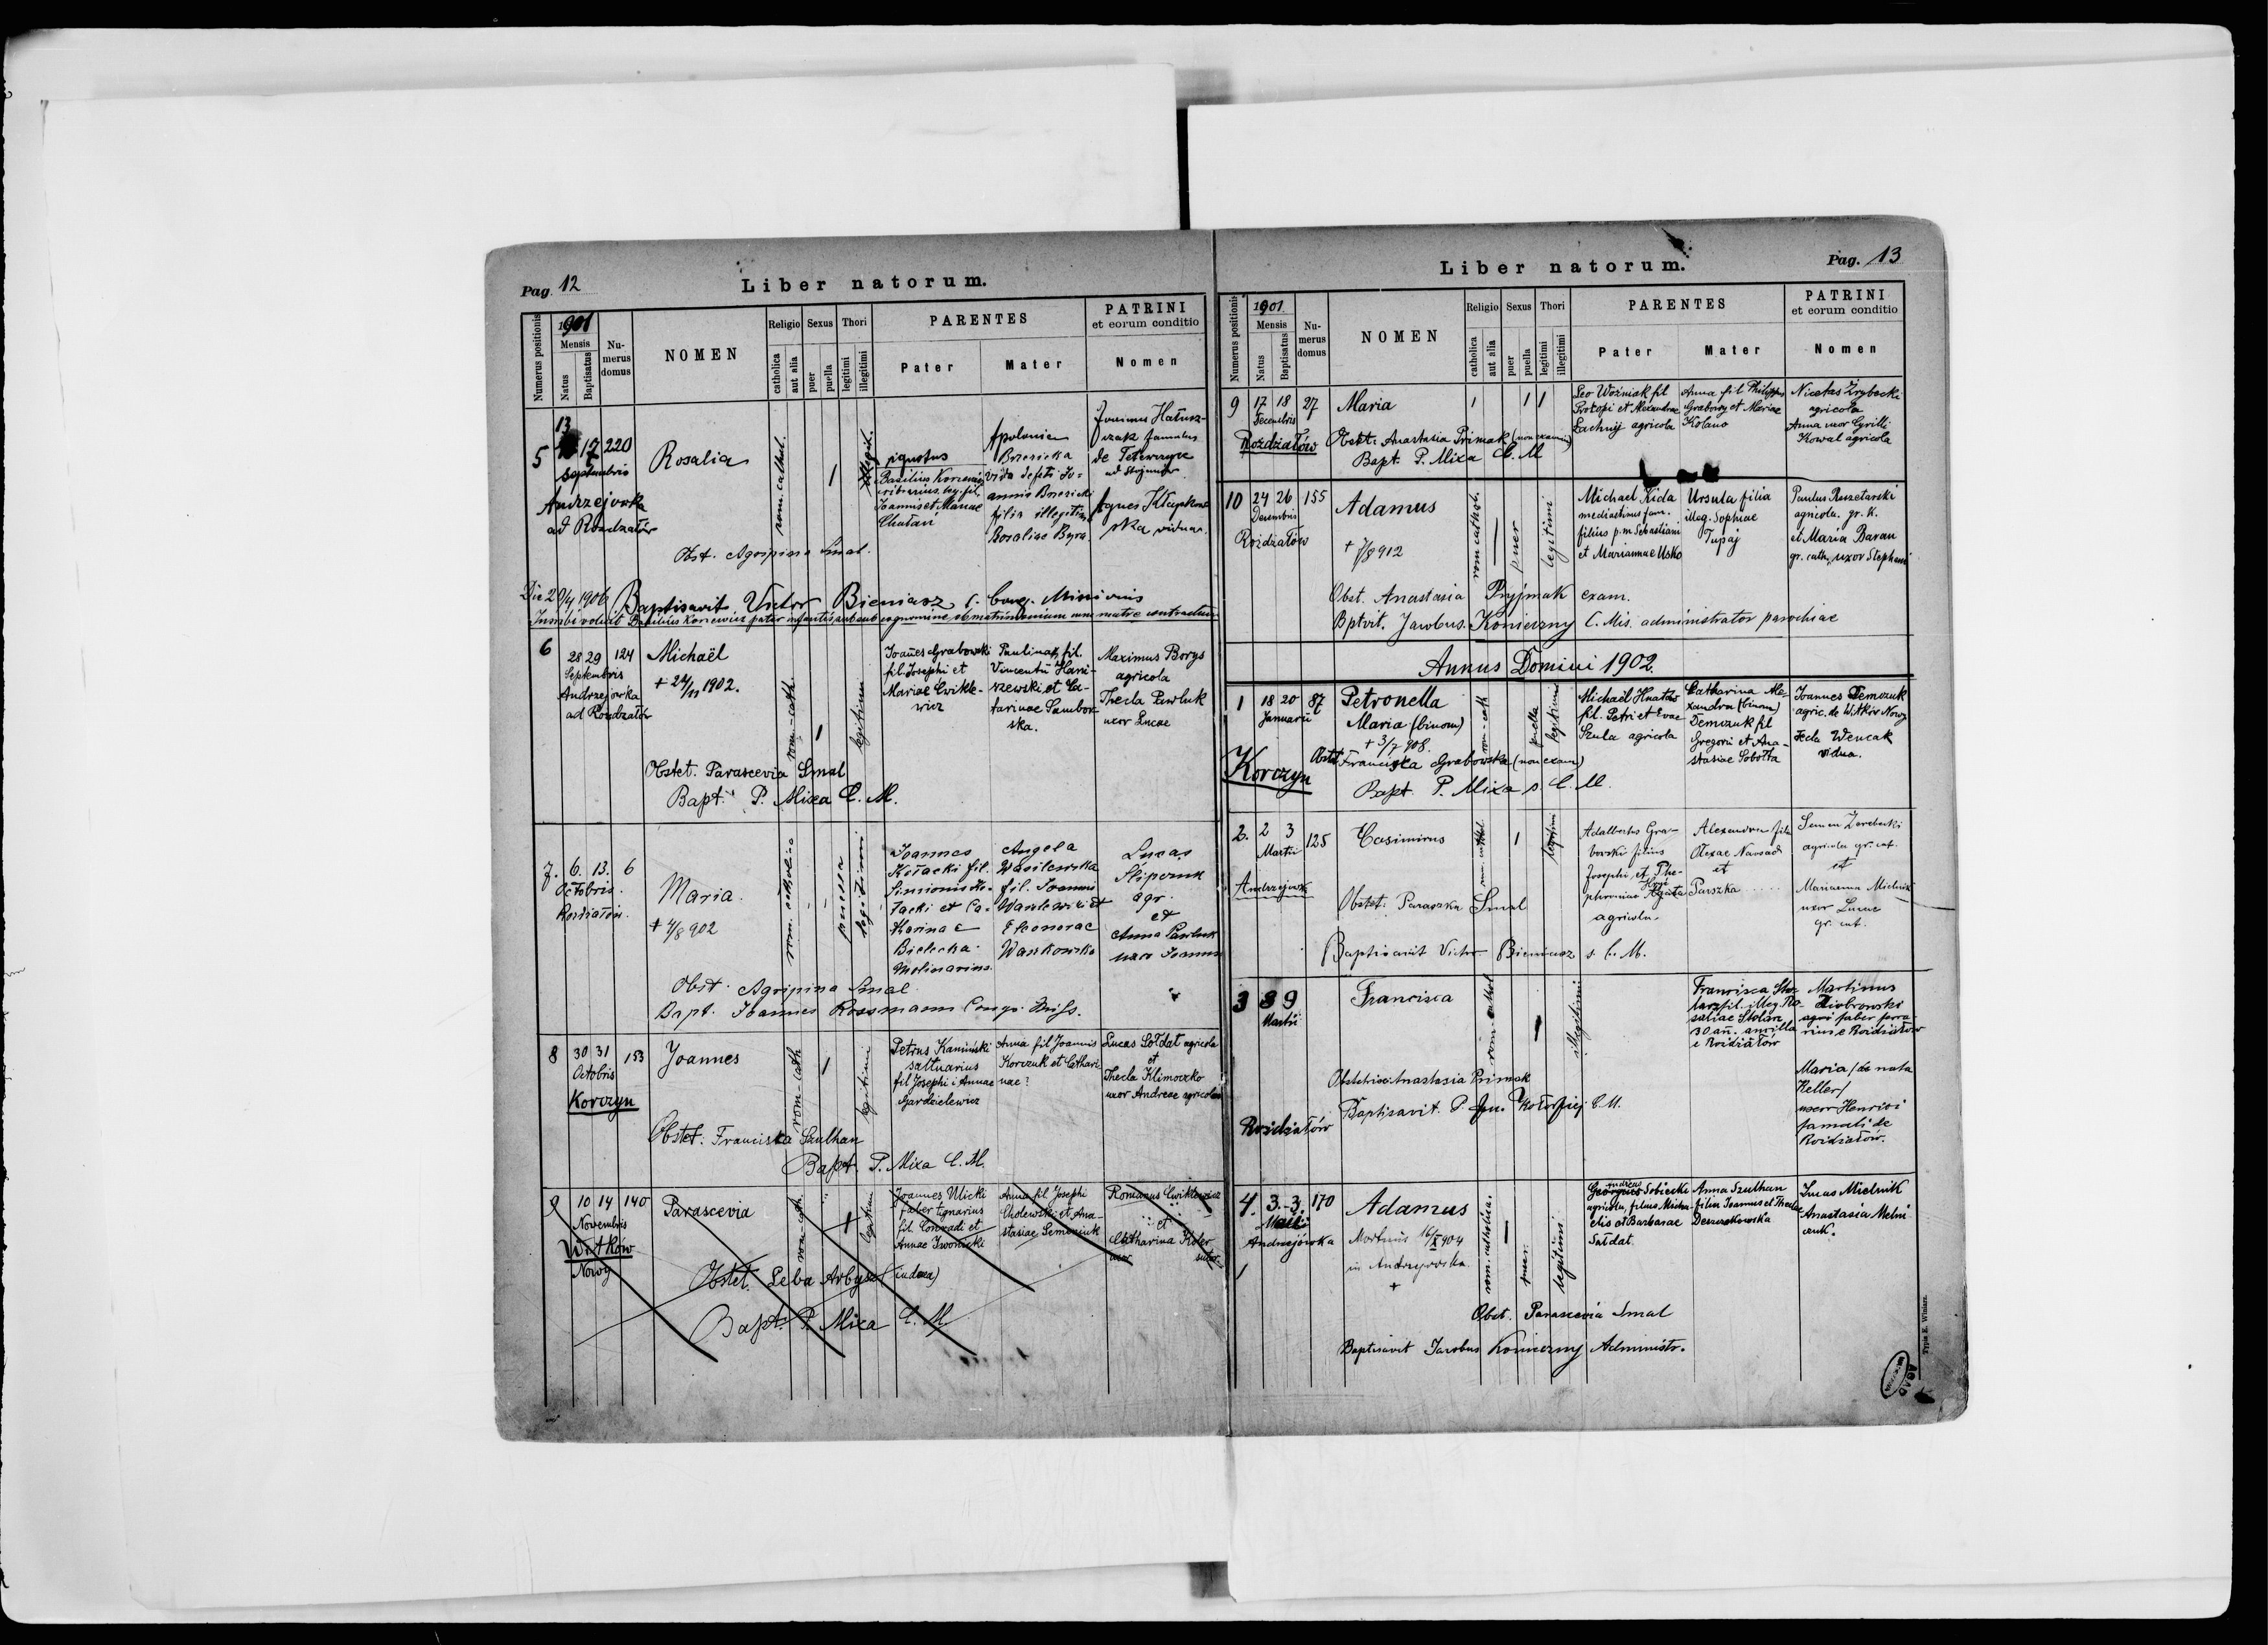 Pag. 12
Liber natorum.
Numerus positionis
1901
Mensis
Natus
Baptisatus
Nu-
merus
domus
NOMEN
Religio
catholica
aut alia
Sexus
puer
puella
Thori
legitimi
illegitimi
PARENTES
Pater
Mater
PATRINI
et eorum conditio
Nomen
5
13
17
220
Septembris
Andrzejovka
ad Rozdzałów
Rosalia
rom. cathol.
1
illegit.
Basilius
leg. fil.
Joannis et Mariae
Apolonia
Brzezicka
vidua
annis Brzezicki
filia illegitima
Rosaliae
Joannes
famulus
de
Agnes
vidua
Obst. Agripina Smal.
Die 2 1906 Baptisavit Victor Bieniasz C. Cong. Missionis
6
28 29 124
Septembris
Andrzejowka
ad Rozdzałów
Michaël
+ 24/11 1902.
rom-cath
1
legitimi
Joannes Grabowski
fil. Josephi et
Mariae Cwikle-
wicz
Paulina fil.
Vincentii Hani-
szewski et Ca-
tarinae Sambor-
ska.
Maximus Borys
agricola
Thecla Pawluk
uxor Lucae
Obstet. Parascevia Smal
Bapt. P. Mixa C. M.
7. 6. 13. 6
Octobris.
Rozdziałów.
Maria.
+ 4/8 902
rom. catholica
puella
legitimi
Joannes
Kołacki fil.
Simionis Ko-
łacki et Ca-
tharina e
Bielecka
Molinarius.
Angela
Wasilewska
fil. Joannis
Wasilewski et
Eleonorae
Waskowska
Lucas
Slipczuk
agr.
et
Anna Pawluk
uxor Joannis
Obst. Agripina Smal
Bapt. Joannes Rossmann Congr. Miss.
8
30 31
153
Octobris
Korczyn
Joannes
rom-cath
1
legitimi
Petrus Kamiński
saltuarius
fil Josephi i Annae
Gardzielewicz
Anna fil Joannis
Korczuk et Cathari
nae ?
Lucas Sołdat agricola
et
Thecla Klimoczko
uxor Andreae agricolae
Obstet: Francisca Szulhan
Bapt. P. Mixa C. M.
9
10 14 140
Novembris
Witków
Nowy
Parascevia
rom-cath
legitimi
Joannes Ulicki
faber lignarius
fil. Conradi et
Annae Iwonicki
Anna fil Josephi
Cholewski et Ana-
stasiae Semeniuk
Romanus Cwiklewicz
et
Catharina
uxor
Obstet. Leba (iudaea)
Bapt. P. Mixa C. M
Liber natorum.
Pag. 13
Numerus positionis
1901
Mensis
Natus
Baptisatus
Nu-
merus
domus
NOMEN
Religio
catholica
aut alia
Sexus
puer
puella
Thori
legitimi
illegitimi
PARENTES
Pater
Mater
PATRINI
et eorum conditio
Nomen
9 17 18 27
Decembris
Rozdziałów
Maria
1
1
1
Leo Woźniak fil
Prokopi et Alexandrae
Lachnij agricola
Anna fil Philippi
Grabowy et Mariae
Kolano
Nicetas Zrybecki
agricola
Anna uxor Cyrilli
Kowal agricola
Obstt: Anastasia Primak (non examin)
Bapt. P. Mixa C. M
10 24 26 155
Decembris
Rozdziałów
Adamus
+ 7/8 912
rom cathol.
puer
legitimi
Michael Kida
mediastinus fam.
filius p.m Sebastiani
et Mariannae Usko
Ursula filia
illeg. Sophiae
Tupaj
Paulus Ruzetarski
agricola. gr. K.
et Maria Baran
gr. cath. uxor Stephani
Obst. Anastasia Pryjmak exam.
Bptvit. Jacobus Konieczny C. Mis. administrator parochiae
Annus Domini 1902.
1 18 20 87
Januarii
Korczyn
Petronella
Maria (binom)
+ 3/7 908.
rom-cath
puella
legitimi
Michaël Hnatów
fil. Petri et Evae
Szula agricola
Catharina Ale-
xandra (binom)
Demczuk fil
Gregorii et Ana-
stasiae Sobotta
Joannes Demczuk
agric. de Witków Nowy
Tecla Wencak
vidua.
Obstt Francisca Grabowska (non exam)
Bapt. P. Mixa s. C. M.
2. 2 3 125
Martii
Andrzejowk
Casimirus
rom. cathol.
1
legitimi
Adalbertus Gra-
bowski filius
Josephi et The-
phroniae Agata
agricola.
Alexandra filia
Olexae Nawsad
et
Parszka
Semen Zerebecki
agricola gr. cat.
et
Marianna Mielnik
uxor Lucae
gr. cat.
Obstet: Paraszka Smal
Baptisavit Victor Bieniasz s. C. M.
3 8 9
Martii
Rozdziałów
Francisca
rom-cathol
1
illegitimi
Francisca Sto-
larz fil. illeg. Ro-
saliae Stolarz
30 an. ancilla
e Rozdziałów
Martinus
Ziobrowski
faber ferra-
rius e Rozdziałów
Maria / de nata
Keller /
uxor Henrici
famuli de
Rozdziałów.
Obstetrix: Anastasia Primak
Baptisavit. P. C. M.
4. 3. 3. 170
Maii
Andrzejówka
Adamus
Mortuus 16/X 904
in Andrzejowka.
+
rom. catholica.
puer.
legitimi
Andreas
Georgius Sobiecki
agricola, filius Micha-
elis et Barbarae
Sałdat.
Anna Szulhan
filia Joannis et Theclae
Deszczkowska
Lucas Mielnik
Anastasia Melni-
czuk.
Obst. Parascevia Smal
Baptisavit Jacobus Konieczny Administr.
Typis E. Winiarz.
AGAD